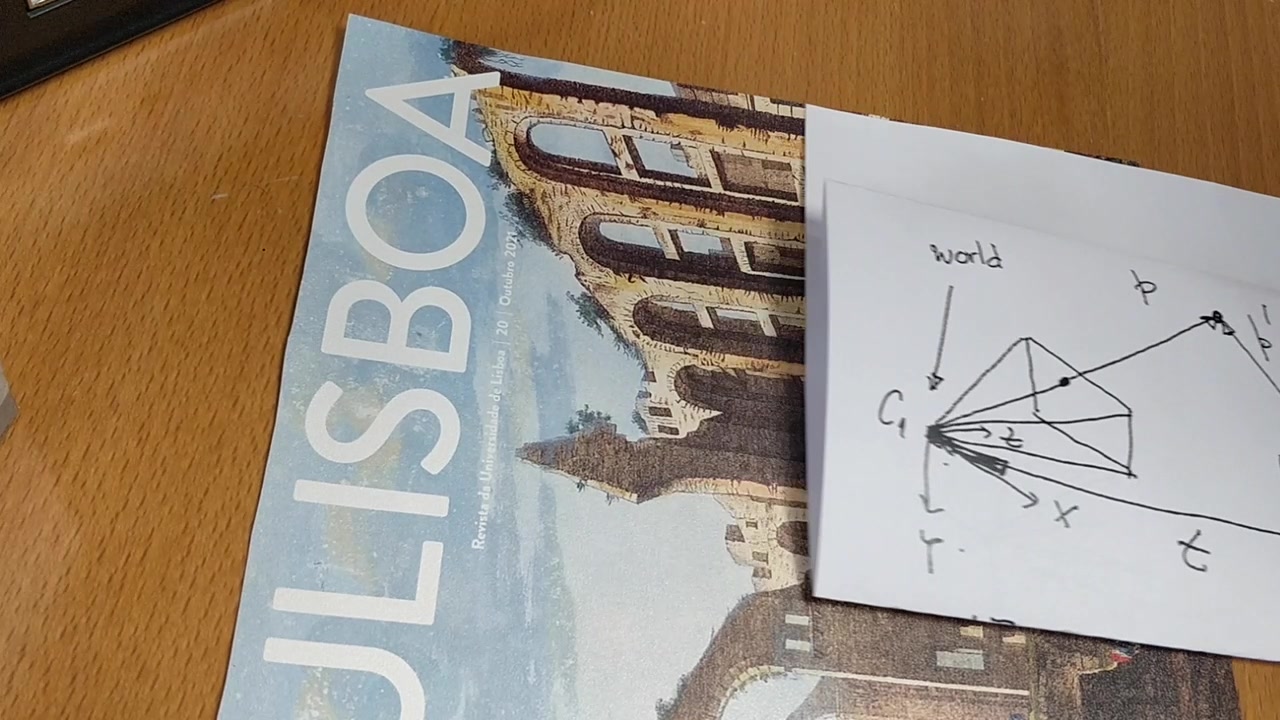 ULISBOA
Revista da Universidade de Lisboa | 20 | Outubro 2021
world
p
p'
C1
z
X
Y
t